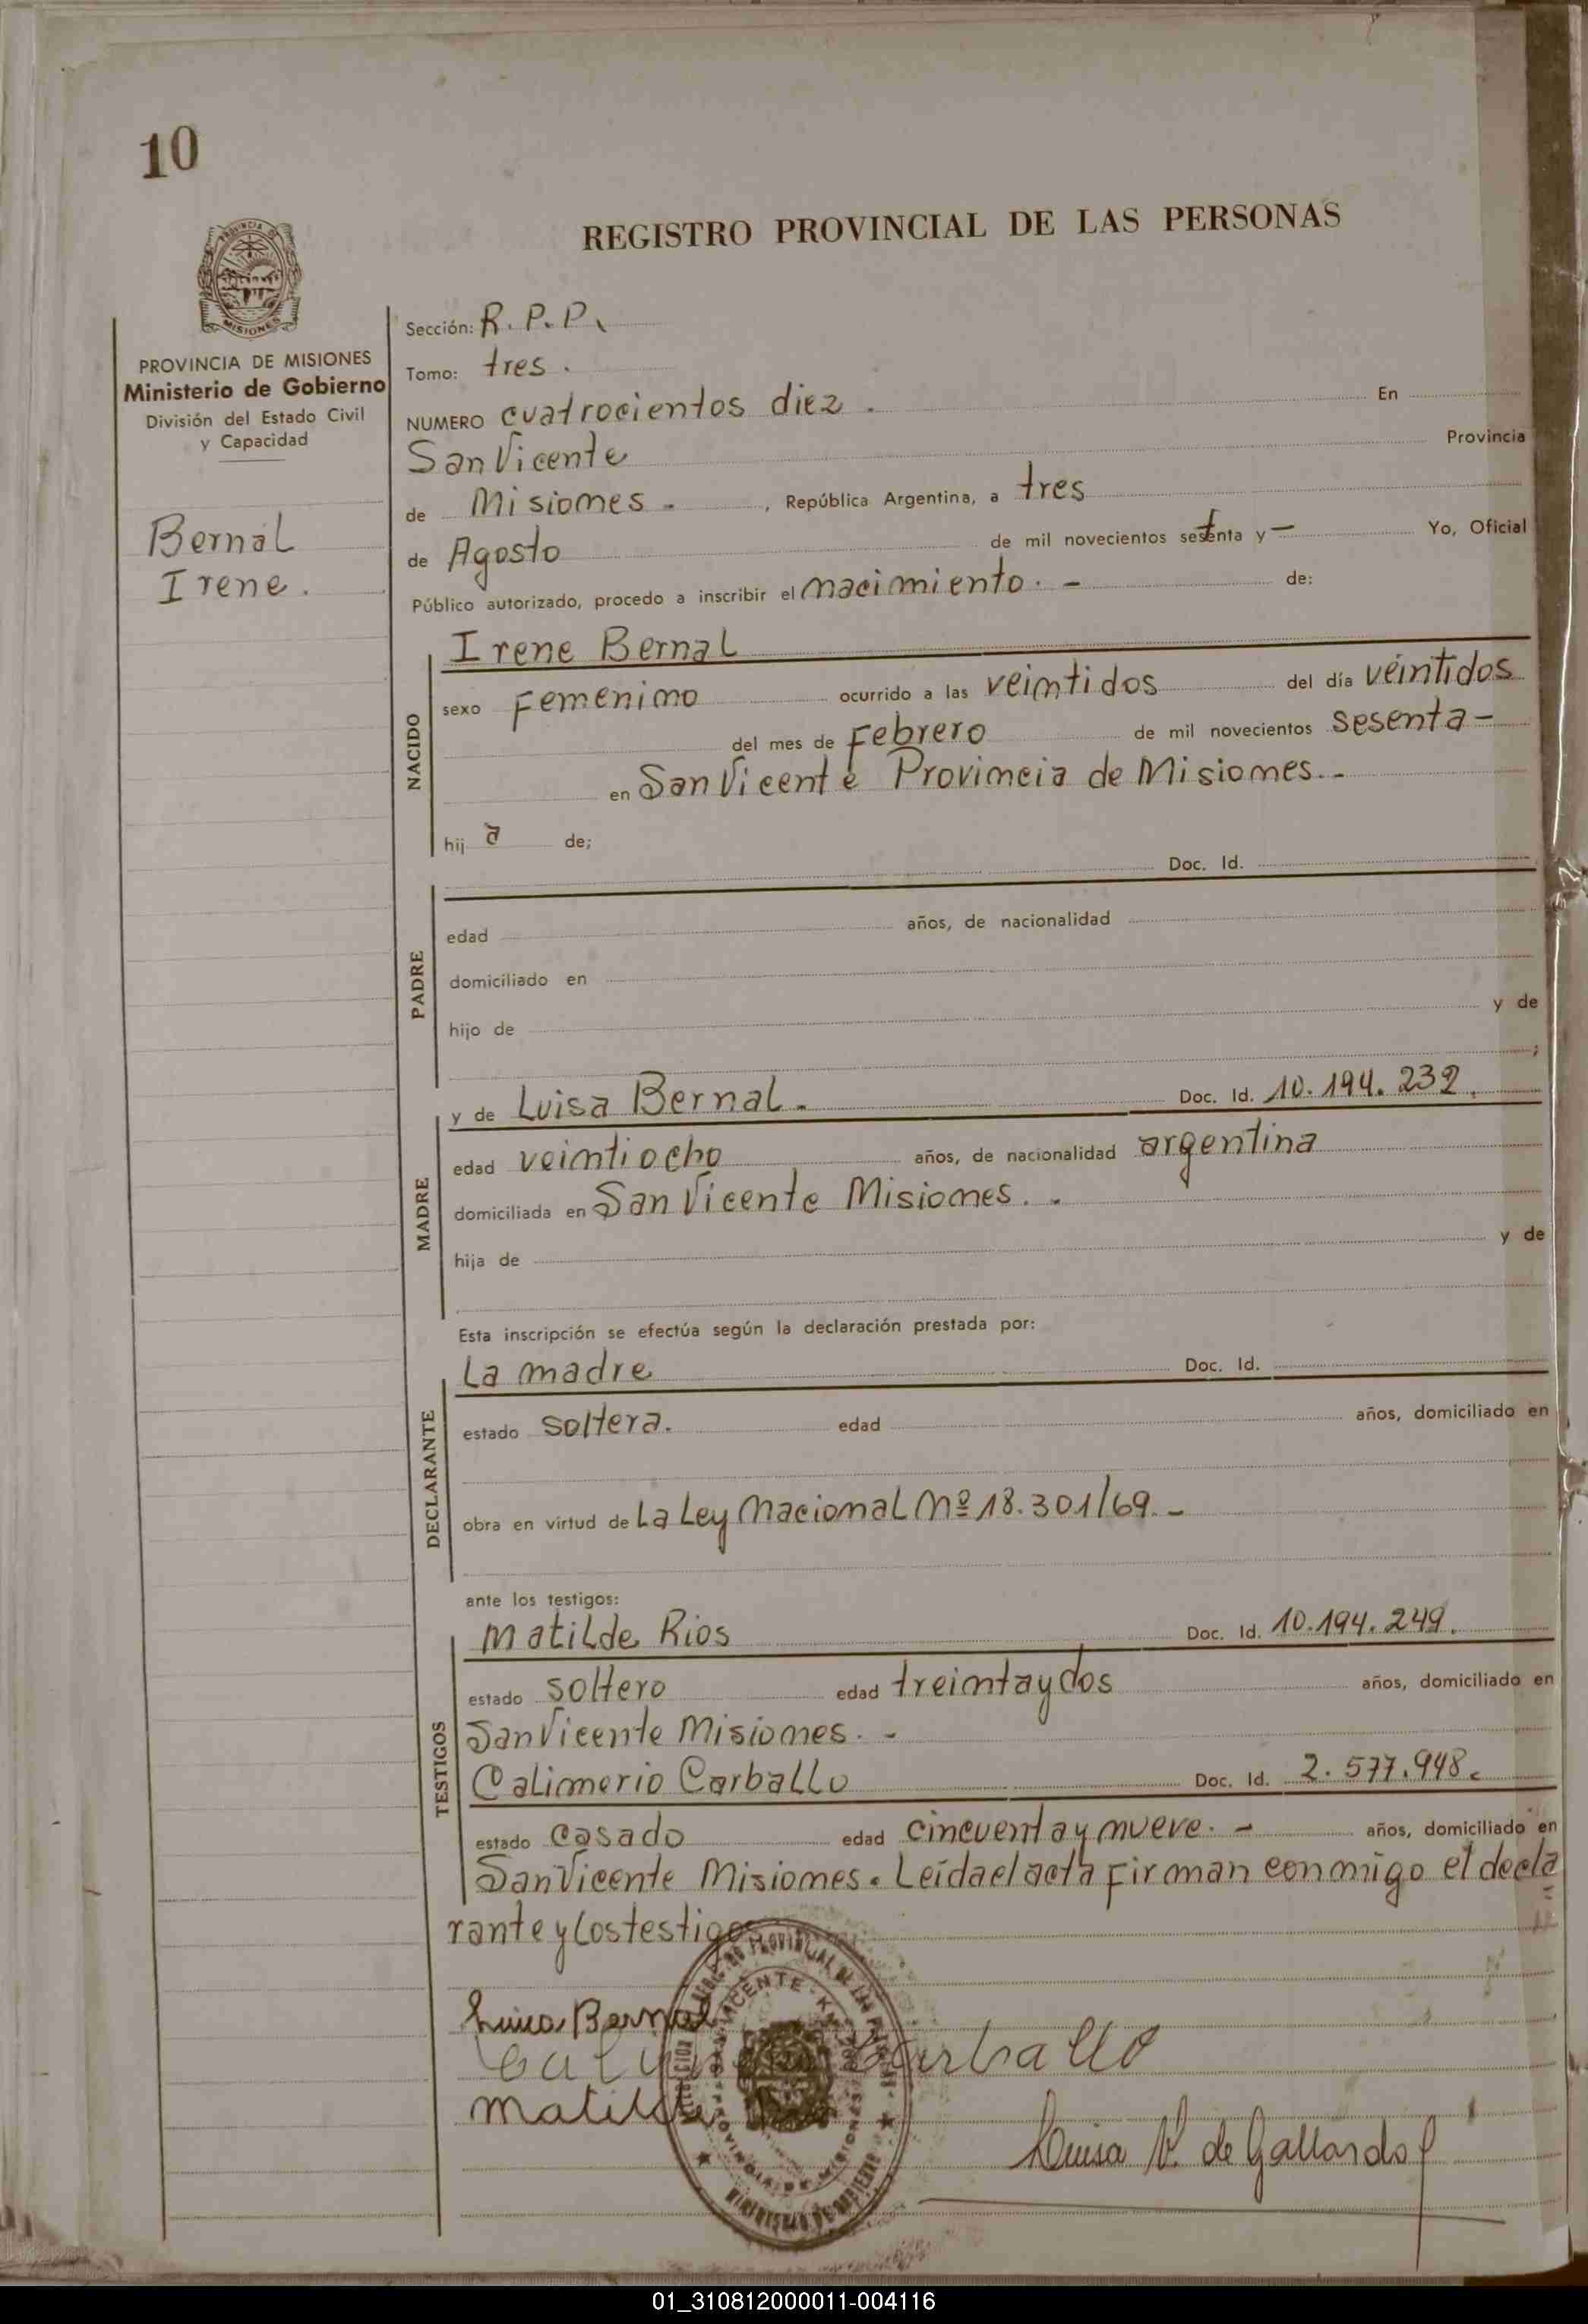 10
REGISTRO PROVINCIAL DE LAS PERSONAS
PROVINCIA DE MISIONES
Ministerio de Gobierno
División del Estado Civil
y Capacidad
Bernal
Irene.
Sección: R. P. P.
Tomo: tres.
NUMERO cuatrocientos diez. En
San Vicente Provincia
de Misiones - , República Argentina, a tres
de Agosto de mil novecientos setenta y — Yo, Oficial
Público autorizado, procedo a inscribir el nacimiento. - de:
Irene Bernal
NACIDO
sexo Femenino ocurrido a las veintidos del día veintidos
del mes de Febrero de mil novecientos sesenta -
en San Vicente Provincia de Misiones. -
hij a de;
Doc. Id.
PADRE
edad años, de nacionalidad
domiciliado en
hijo de y de
;
y de Luisa Bernal. Doc. Id. 10.194.232.
MADRE
edad veintiocho años, de nacionalidad argentina
domiciliada en San Vicente Misiones. -
hija de y de
Esta inscripción se efectúa según la declaración prestada por:
La madre Doc. Id.
DECLARANTE
estado soltera. edad años, domiciliado en
obra en virtud de La Ley Nacional Nº 18.301/69. -
ante los testigos:
Matilde Rios Doc. Id. 10.194.249.
TESTIGOS
estado soltero edad treintaydos años, domiciliado en
San Vicente Misiones. -
Calimerio Carballo Doc. Id. 2.577.948.
estado casado edad cincuentaynueve. - años, domiciliado en
San Vicente Misiones. Leída el acta firman conmigo el decla
rante y los testigos
Luisa Bernal
Carballo
Matilde
Luisa V. de Gallardo
SAN VICENTE
PROVINCIA DE MISIONES
MINISTERIO DE GOBIERNO
01_310812000011-004116